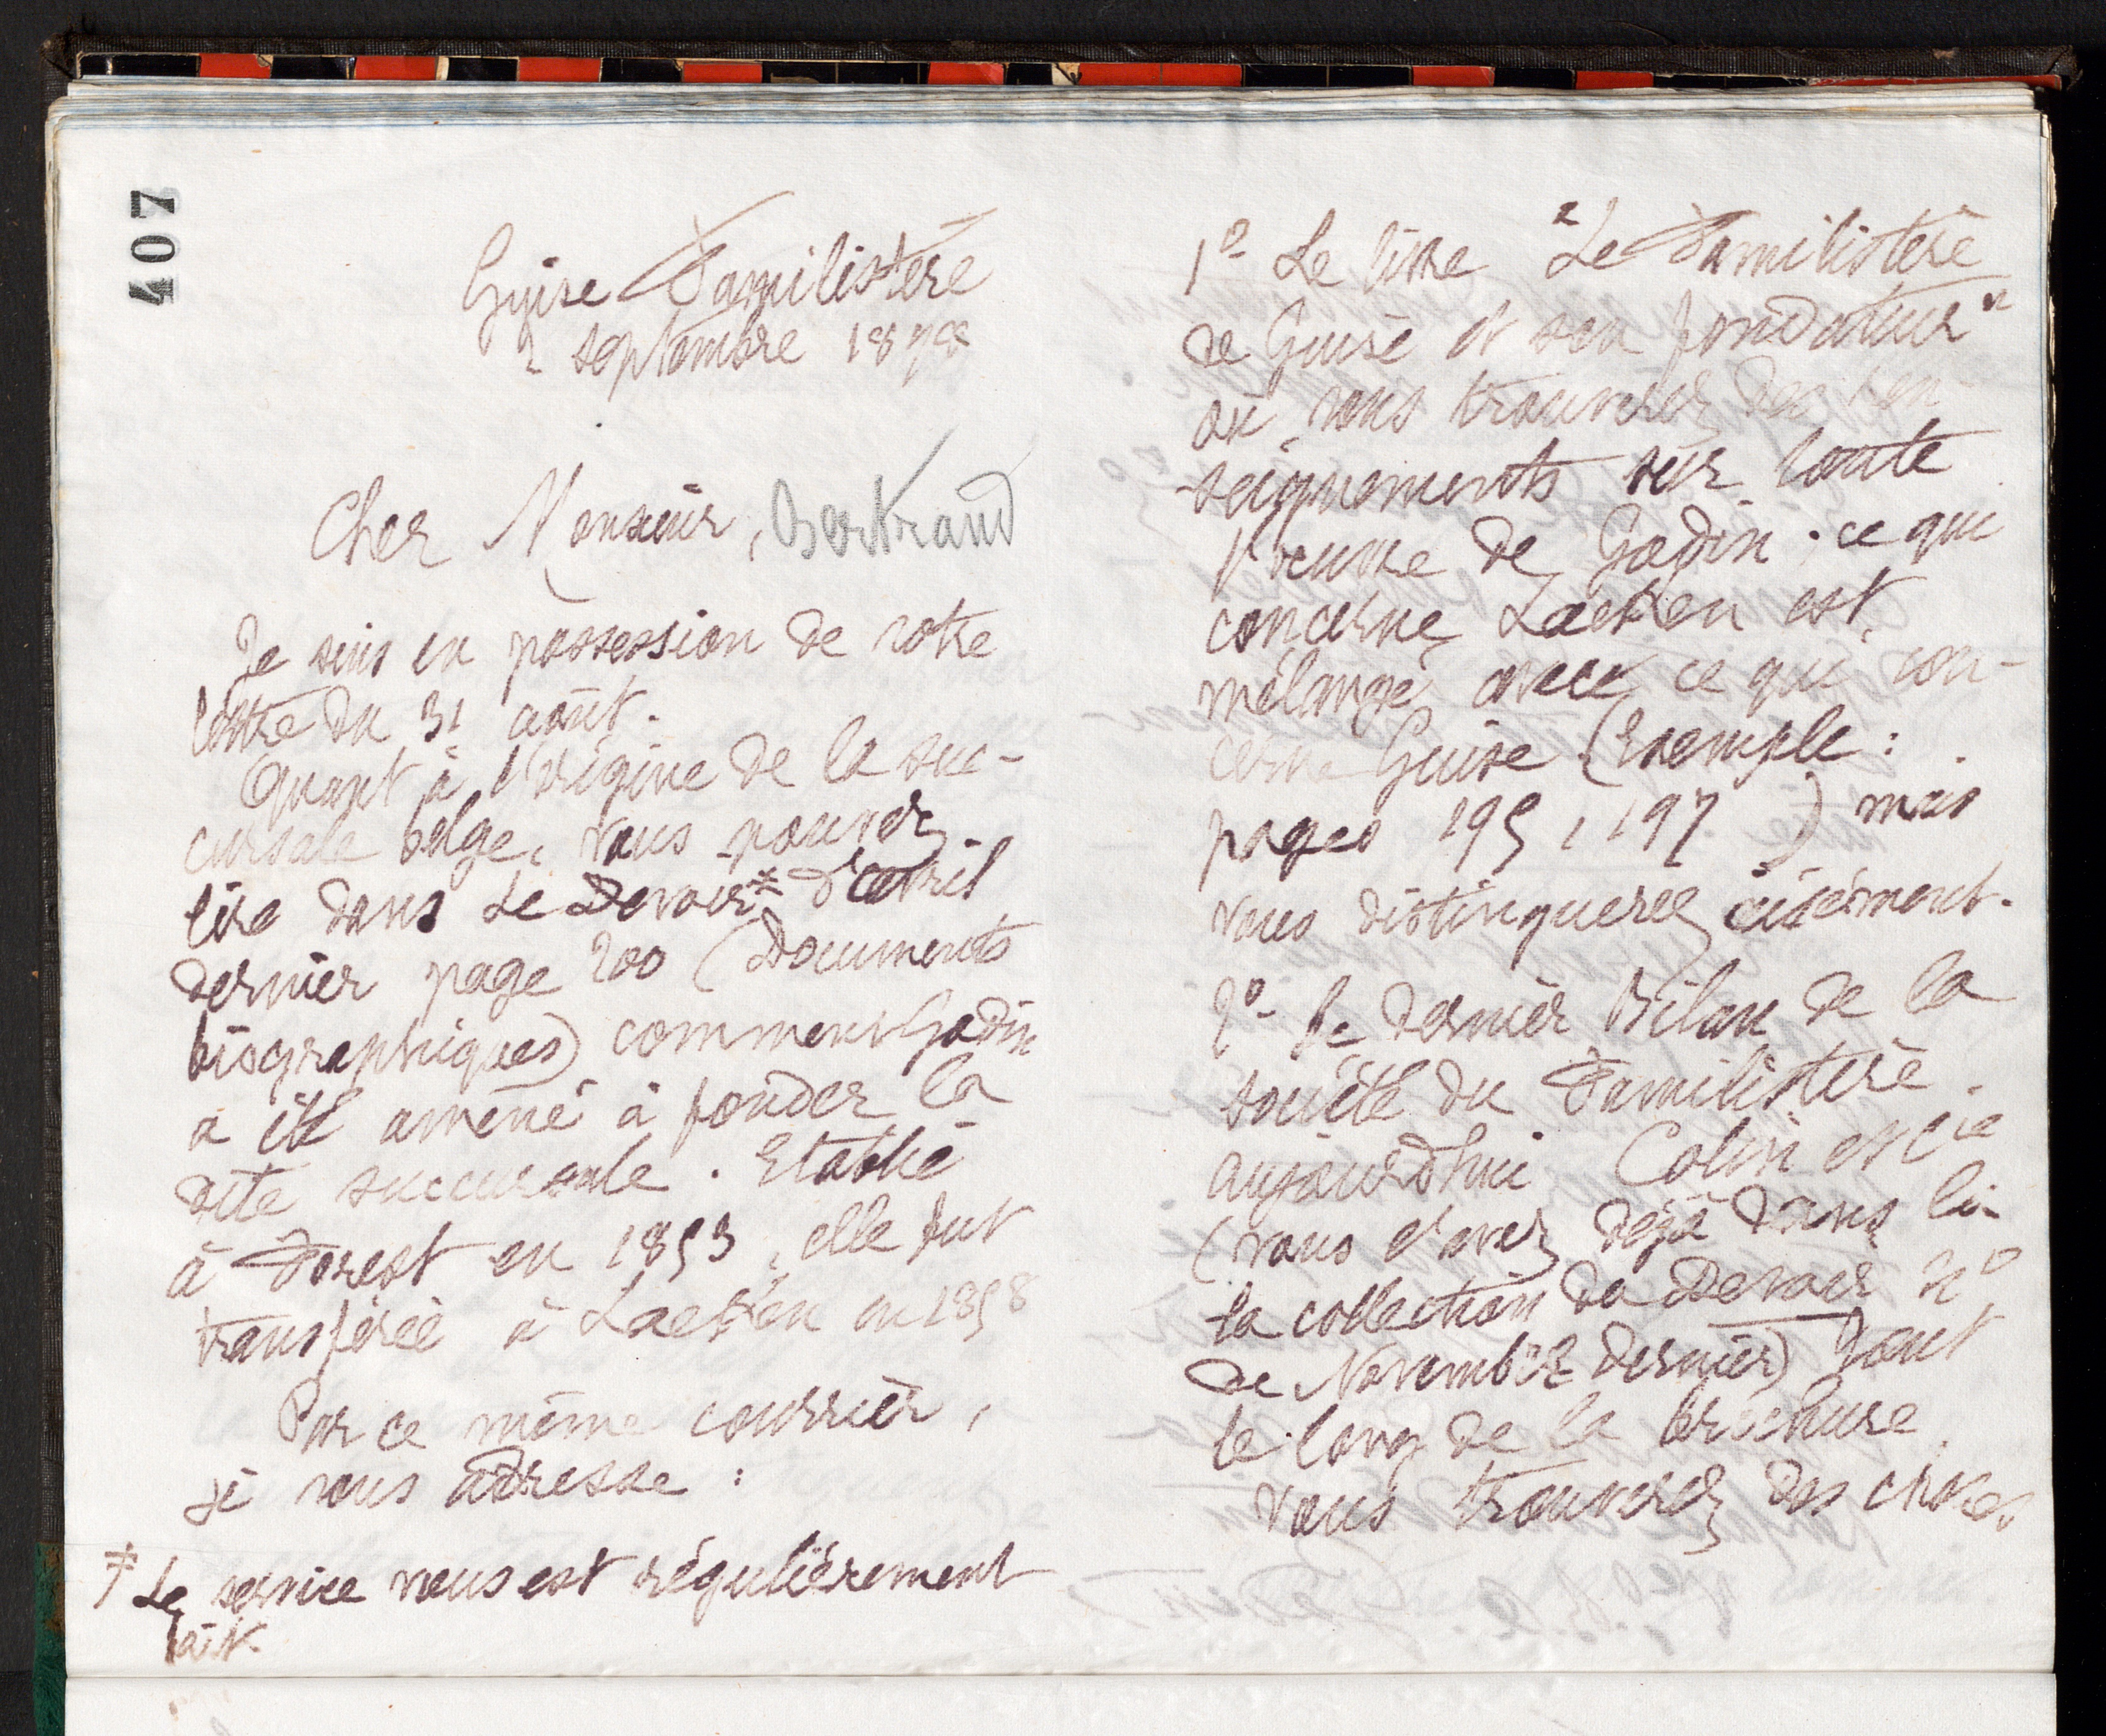 407
Guise Familistère
2 septembre 1898
Cher Monsieur, Bertrand
Je suis en possession de votre
lettre du 31 août.
Quant à l'origine de la suc-
cursale belge, vous pouvez
lire dans Le Devoir* d'avril
dernier page 200 (Documents
biographiques) comment Godin
a été amené à fonder la
dite succursale. Etablie
à Forest en 1853, elle fut
transférée à Laeken en 1858
Par ce même courrier,
je vous adresse :
* Le service vous est régulièrement
fait.
1º Le livre "Le Familistère
de Guise et son fondateur"
où vous trouverez des ren-
seignements sur toute
l'œuvre de Godin. ce qui
concerne Laeken est
mélangé avec ce qui con-
cerne Guise (Exemple :
pages 195, 197 ) mais
vous distinguerez aisément.
2º Le dernier Bilan de la
société du Familistère.
aujourd'hui Colin et Cie
(vous l'avez déjà dans
la collection du Devoir nº
de Novembre dernier) Tout
le long de la brochure
vous trouverez des choses